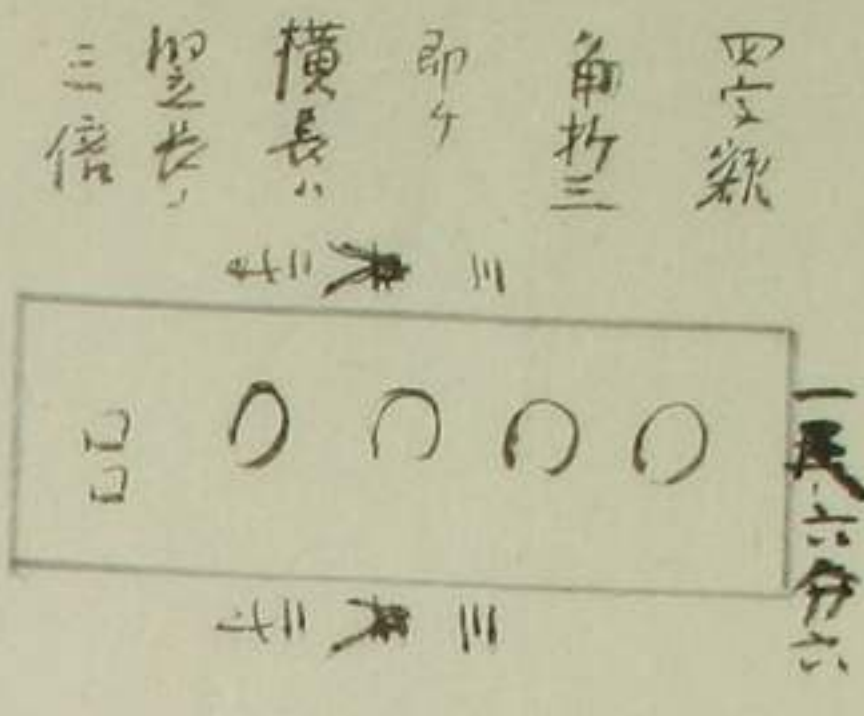 四字額
角折三
即チ
横長ハ
竪長ノ
三倍
三尺二寸
一尺、六分六
三尺二寸